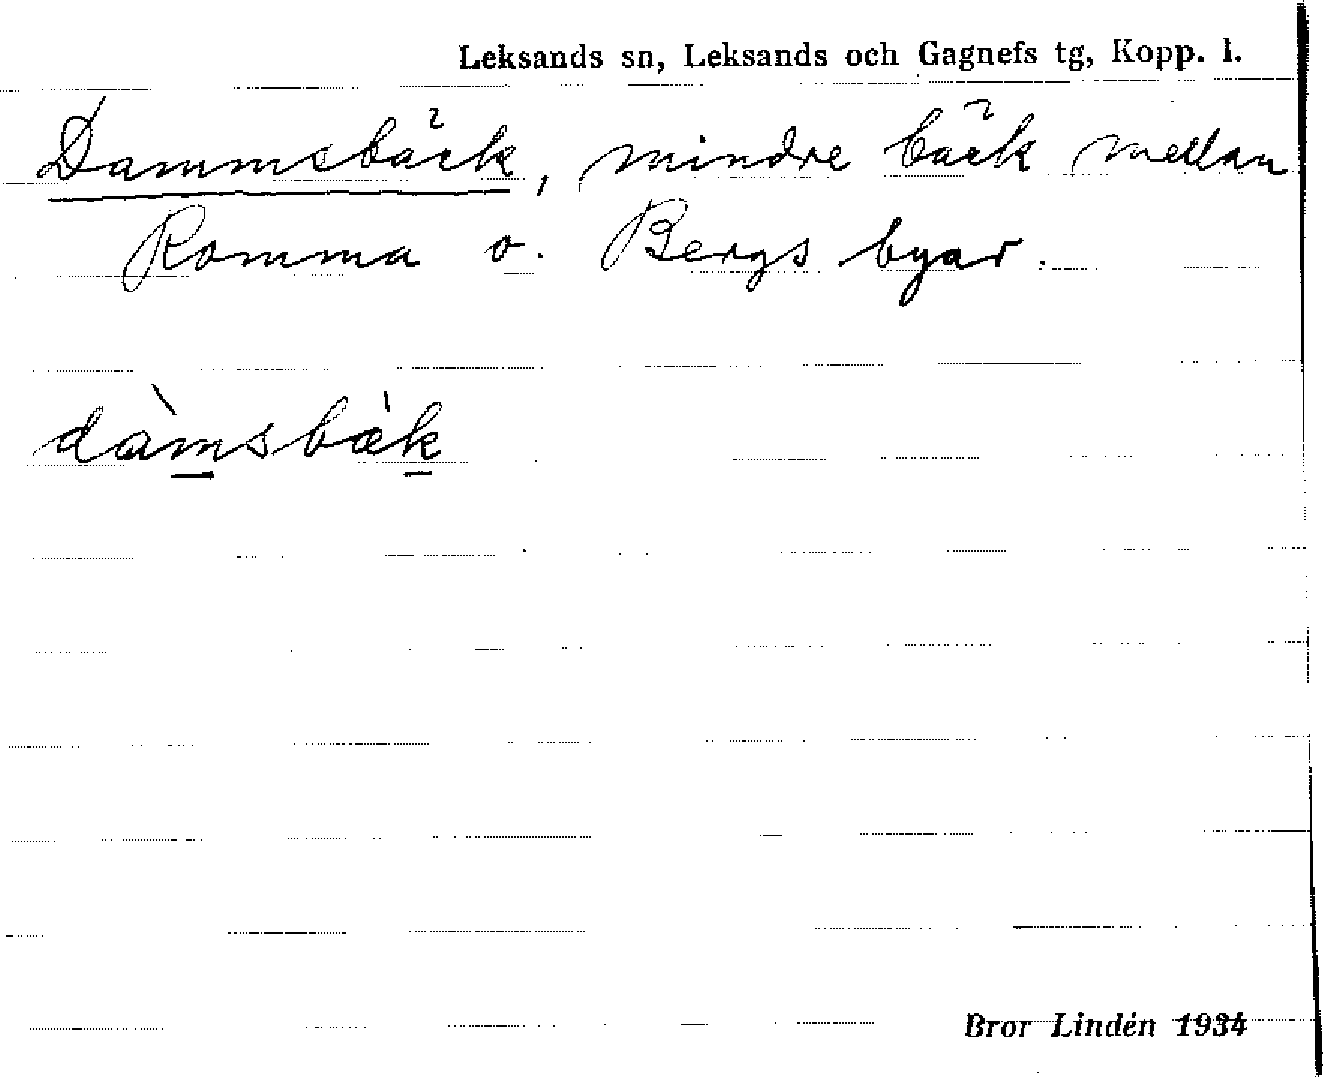 Leksands sn, Leksands och Gagnefs tg, Kopp. l.
Dammsbäck, mindre bäck mellan
Romma o. Bergs byar.
dàmsbæ̀k
Bror Lindén 1934